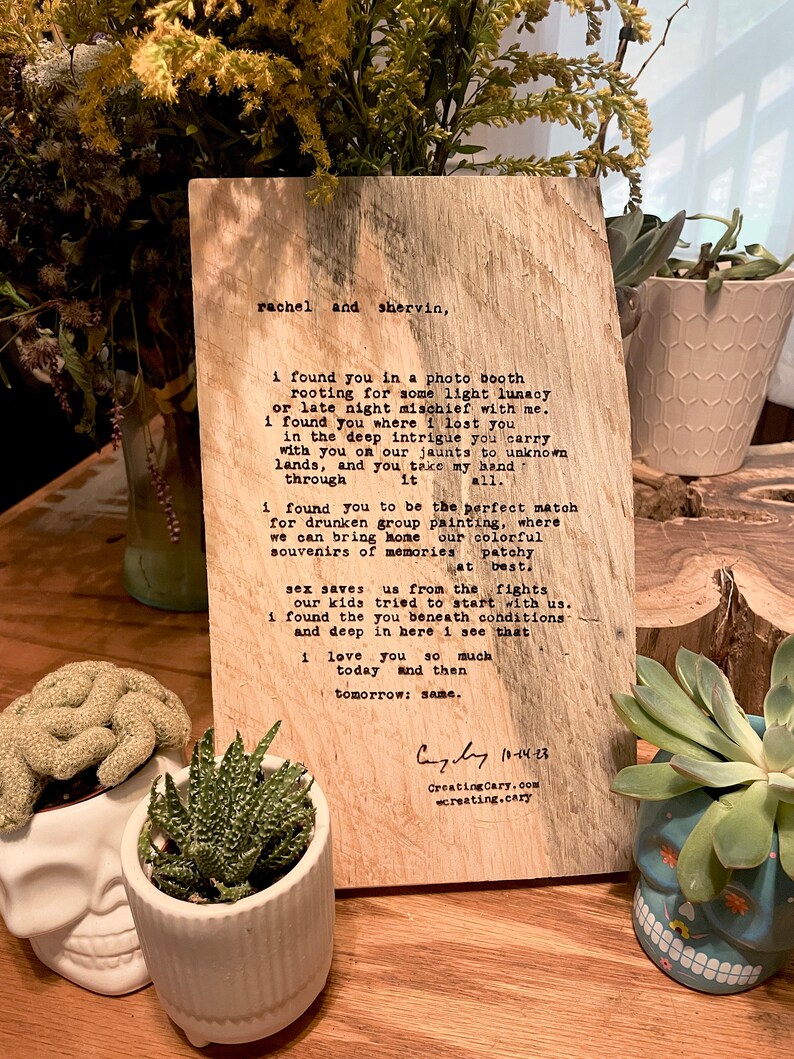 rachel and shervin,
i found you in a photo booth
rooting for some light lunacy
or late night mischief with me.
i found you where i lost you
in the deep intrigue you carry
with you on our jaunts to unknown
lands, and you take my hand
through it all.
i found you to be the perfect match
for drunken group painting, where
we can bring home our colorful
souvenirs of memories patchy
at best.
sex saves us from the fights
our kids tried to start with us.
i found the you beneath conditions
and deep in here i see that
i love you so much
today and then
tomorrow: same.
10-14-23
CreatingCary.com
@creating.cary